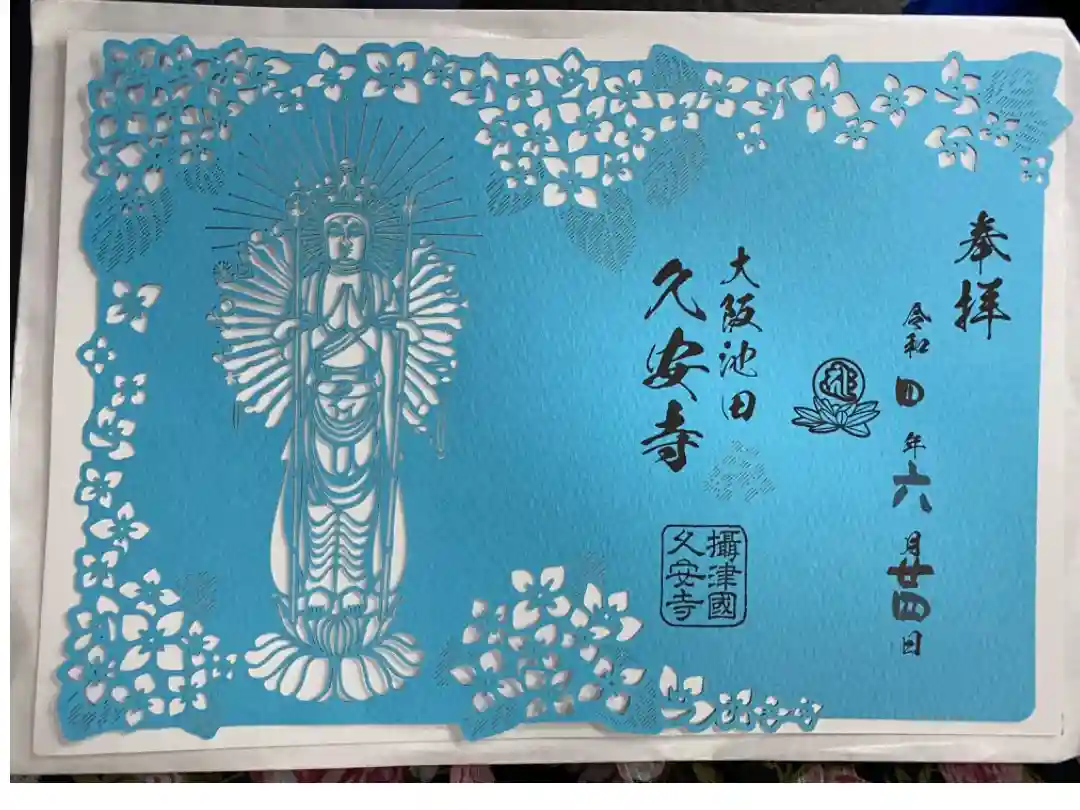 奉拝
令和四年六月廿四日
大阪池田
久安寺
攝津國
久安寺